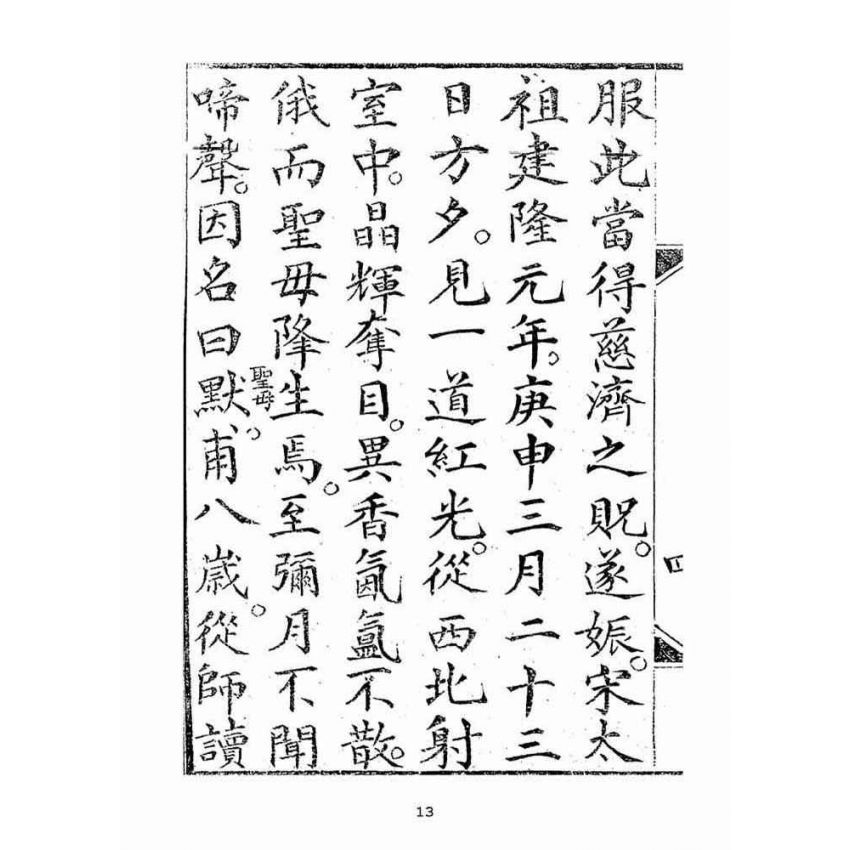 服此當得慈濟之貺。遂娠。宋太
祖建隆元年。庚申三月二十三
日方夕。見一道紅光。從西北射
室中。晶輝奪目。異香氤氳不散。
俄而聖母降生焉。至彌月不聞
啼聲。因名曰默。聖母甫八歲。從師讀
四
13